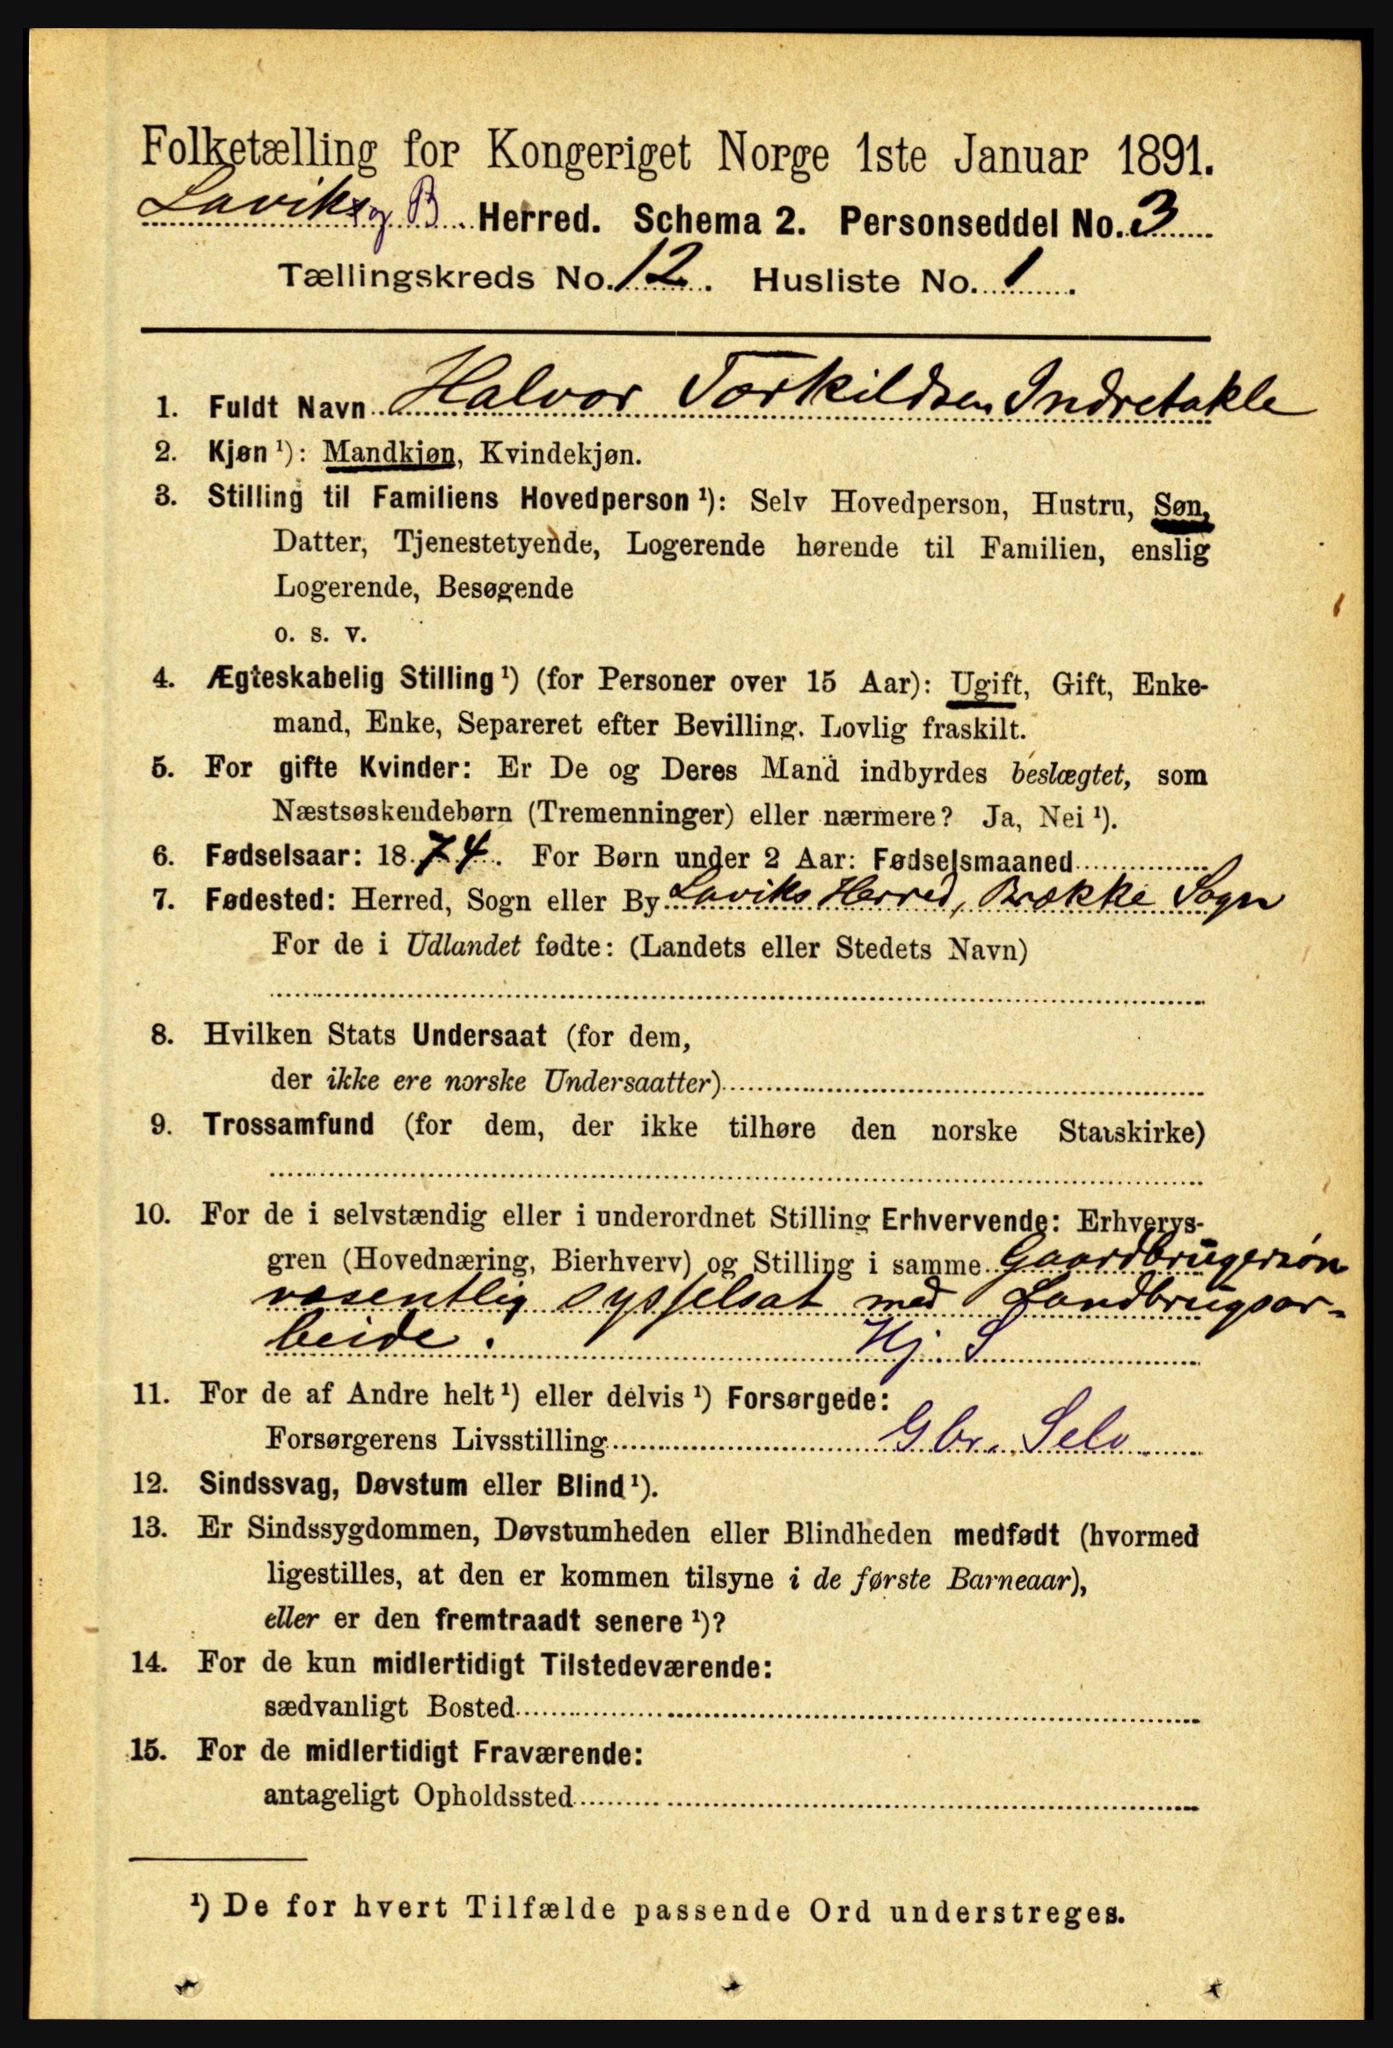 Folketælling for Kongeriget Norge 1ste Januar 1891.
Laviks og B. Herred. Schema 2. Personseddel No. 3
Tællingskreds No. 12. Husliste No. 1.
1. Fuldt Navn Halvor Torkildsen Indretakle
2. Kjøn ¹): Mandkjøn, Kvindekjøn.
3. Stilling til Familiens Hovedperson ¹): Selv Hovedperson, Hustru, Søn,
Datter, Tjenestetyende, Logerende hørende til Familien, enslig
Logerende, Besøgende
o. s. v.
4. Ægteskabelig Stilling ¹) (for Personer over 15 Aar): Ugift, Gift, Enke-
mand, Enke, Separeret efter Bevilling. Lovlig fraskilt.
5. For gifte Kvinder: Er De og Deres Mand indbyrdes beslægtet, som
Næstsøskendebørn (Tremenninger) eller nærmere? Ja, Nei ¹).
6. Fødselsaar: 1874. For Børn under 2 Aar: Fødselsmaaned
7. Fødested: Herred, Sogn eller By Laviks Herred, Brække Sogn
For de i Udlandet fødte: (Landets eller Stedets Navn)
8. Hvilken Stats Undersaat (for dem,
der ikke ere norske Undersaatter)
9. Trossamfund (for dem, der ikke tilhøre den norske Statskirke)
10. For de i selvstændig eller i underordnet Stilling Erhvervende: Erhvervs-
gren (Hovednæring, Bierhverv) og Stilling i samme Gaardbrugersøn
væsentlig sysselsat med Landbrugsar-
beide. Hj. S
11. For de af Andre helt ¹) eller delvis ¹) Forsørgede:
Forsørgerens Livsstilling Gbr. Selv
12. Sindssvag, Døvstum eller Blind ¹).
13. Er Sindssygdommen, Døvstumheden eller Blindheden medfødt (hvormed
ligestilles, at den er kommen tilsyne i de første Barneaar),
eller er den fremtraadt senere ¹)?
14. For de kun midlertidigt Tilstedeværende:
sædvanligt Bosted
15. For de midlertidigt Fraværende:
antageligt Opholdssted
¹) De for hvert Tilfælde passende Ord understreges.